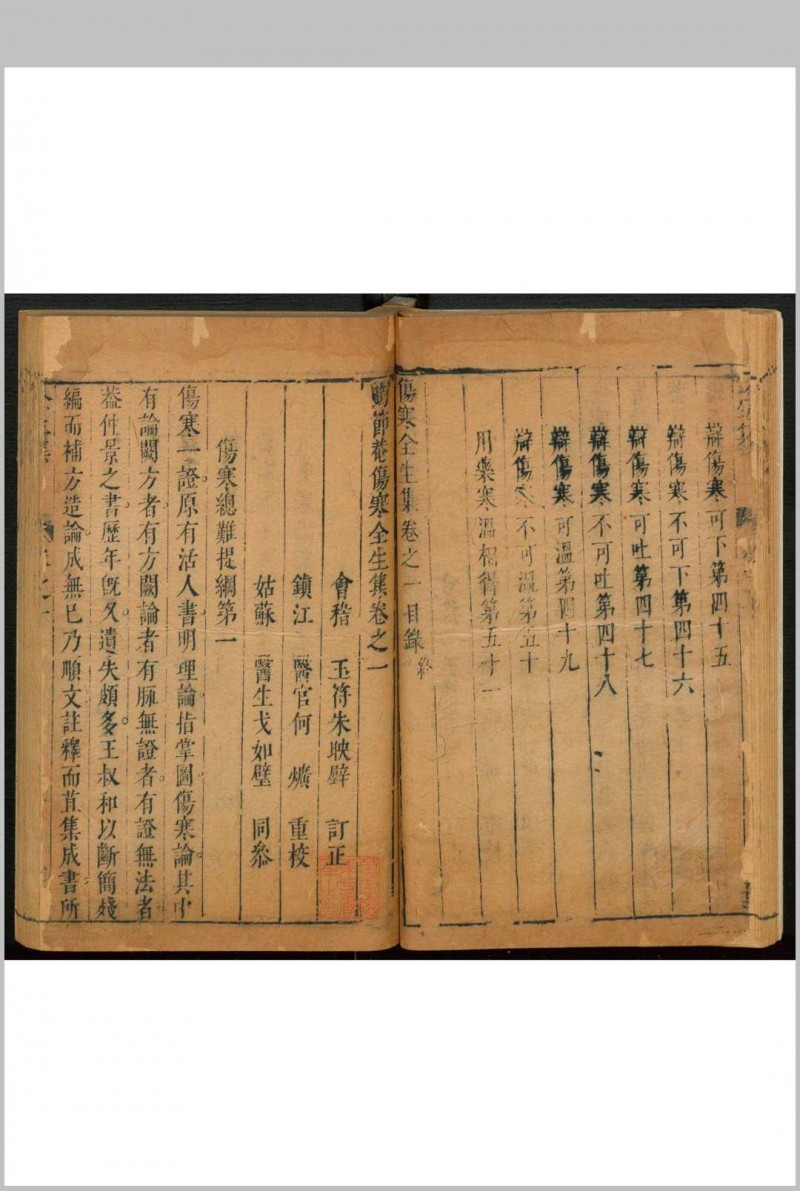 辯傷寒可下第四十五
辯傷寒不可下第四十六
辯傷寒可吐第四十七
辯傷寒不可吐第四十八
辯傷寒可溫第四十九
辯傷寒不可溫第五十
用藥寒溫相得第五十一
傷寒全生集卷之一目錄終
陶節菴傷寒全生集卷之一
會稽 玉符朱映璧 訂正
鎮江 醫官何爌 重校
姑蘇 醫生戈如璧 同叅
傷寒總難提綱第一
傷寒一證原有活人書明理論指掌圖傷寒論其中
有論闕方者有方闕論者有脈無證者有證無法者
葢仲景之書歷年旣久遺失頗多王叔和以斷簡殘
編而補方造論成無已乃順文註釋而苴集成書所